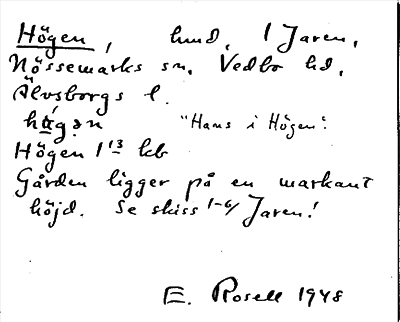 Högen, hmd, 1 Jaren,
Nössemarks sn, Vedbo hd,
Älvsborgs l.
hǿgən "Hans i Högen".
Högen 1¹³ kb
Gården ligger på en markant
höjd. Se skiss 1-6/ Jaren!
E. Rosell 1948